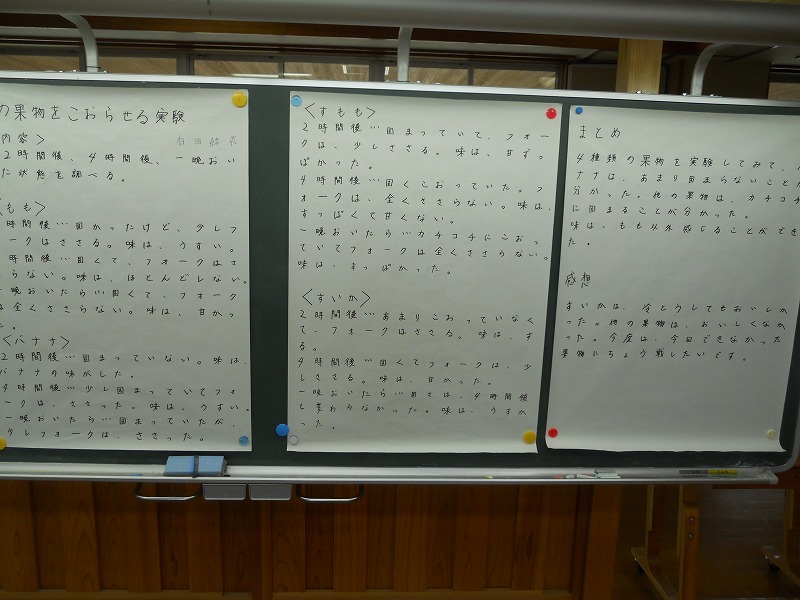 の果物をこおらせる実験
内容>
2時間後、4時間後、一晩おい
た状態を調べる。
<もも>
時間後…固かったけど、少しフ
ークはささる。味は、うすい。
時間後…固くて、フォークはさ
らない。味は、ほとんどしない。
晩おいたら…固くて、フォーク
は全くささらない。味は、甘かっ
た。
<バナナ>
2時間後…固まっていない。味は、
バナナの味がした。
4時間後…少し固まっていてフォ
ークは、ささった。味は、うすい。
一晩おいたら…固まっていたが、
少しフォークは、ささった。
<すもも>
2時間後…固まっていて、フォー
クは、少しささる。味は、甘ずっ
ぱかった。
4時間後…固くこおっていた。フ
ォークは、全くささらない。味は、
すっぱくて甘くない。
一晩おいたら…カチコチにこおっ
ていてフォークは全くささらない。
味は、すっぱかった。
<すいか>
2時間後…あまりこおっていなく
て、フォークはささる。味は、す
る。
4時間後…固くてフォークは、少
しささる。味は、甘かった。
一晩おいたら…固さは、4時間後
と変わらなかった。味は、うすか
った。
まとめ
4種類の果物を実験してみて、
ナナは、あまり固まらないことが
分かった。他の果物は、カチコチ
に固まることが分かった。
味は、もも以外感じることができ
た。
感想
すいかは、冷とうしてもおいしか
った。他の果物は、おいしくなか
った。今度は、今回できなかった
果物にちょう戦したいです。